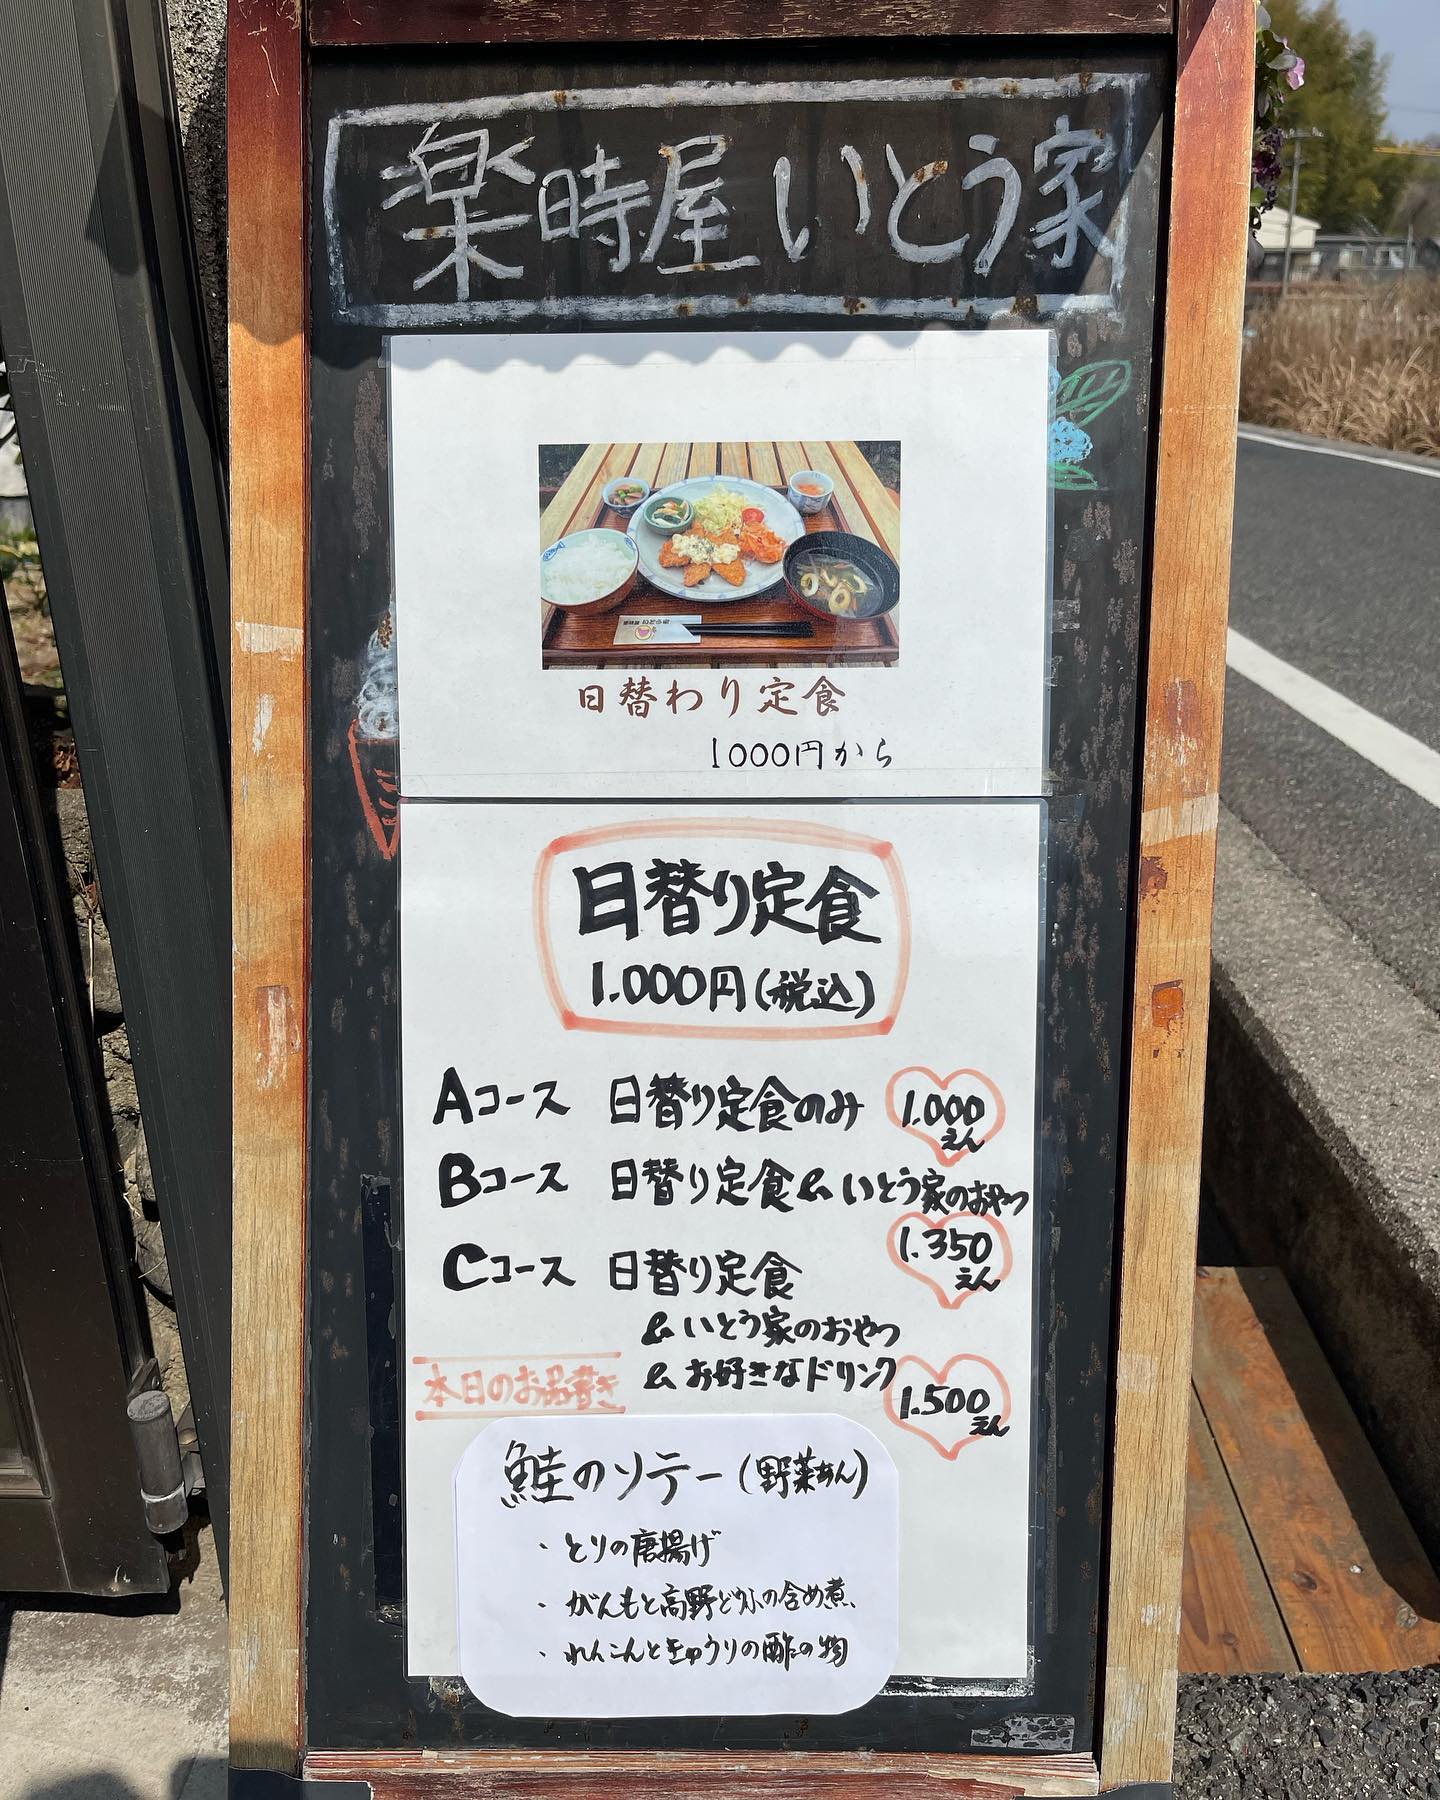 楽時屋 いとう家
楽時屋 いとう家
日替わり定食
1000円から
日替り定食
1.000円(税込)
Aコース 日替り定食のみ 1.000えん
Bコース 日替り定食&いとう家のおやつ
1.350えん
Cコース 日替り定食
&いとう家のおやつ
&お好きなドリンク 1.500えん
本日のお品書き
鮭のソテー(野菜あん)
・とりの唐揚げ
・がんもと高野どうふの含め煮
・れんこんときゅうりの酢の物